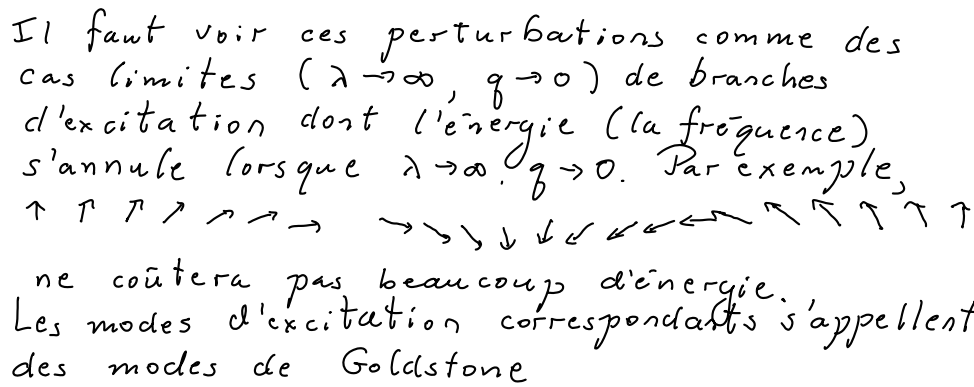 Il faut voir ces perturbations comme des
cas limites (λ→∞, q→0) de branches
d'excitation dont l'énergie (la fréquence)
s'annule lorsque λ→∞, q→0. Par exemple,
↑ ↑ ↗ ↗ ↗ ↗ → ↘ ↘ ↘ ↓ ↓ ↙ ↙ ↙ ← ↖ ↖ ↖ ↖ ↖ ↑
ne coûtera pas beaucoup d'énergie.
Les modes d'excitation correspondants s'appellent
des modes de Goldstone